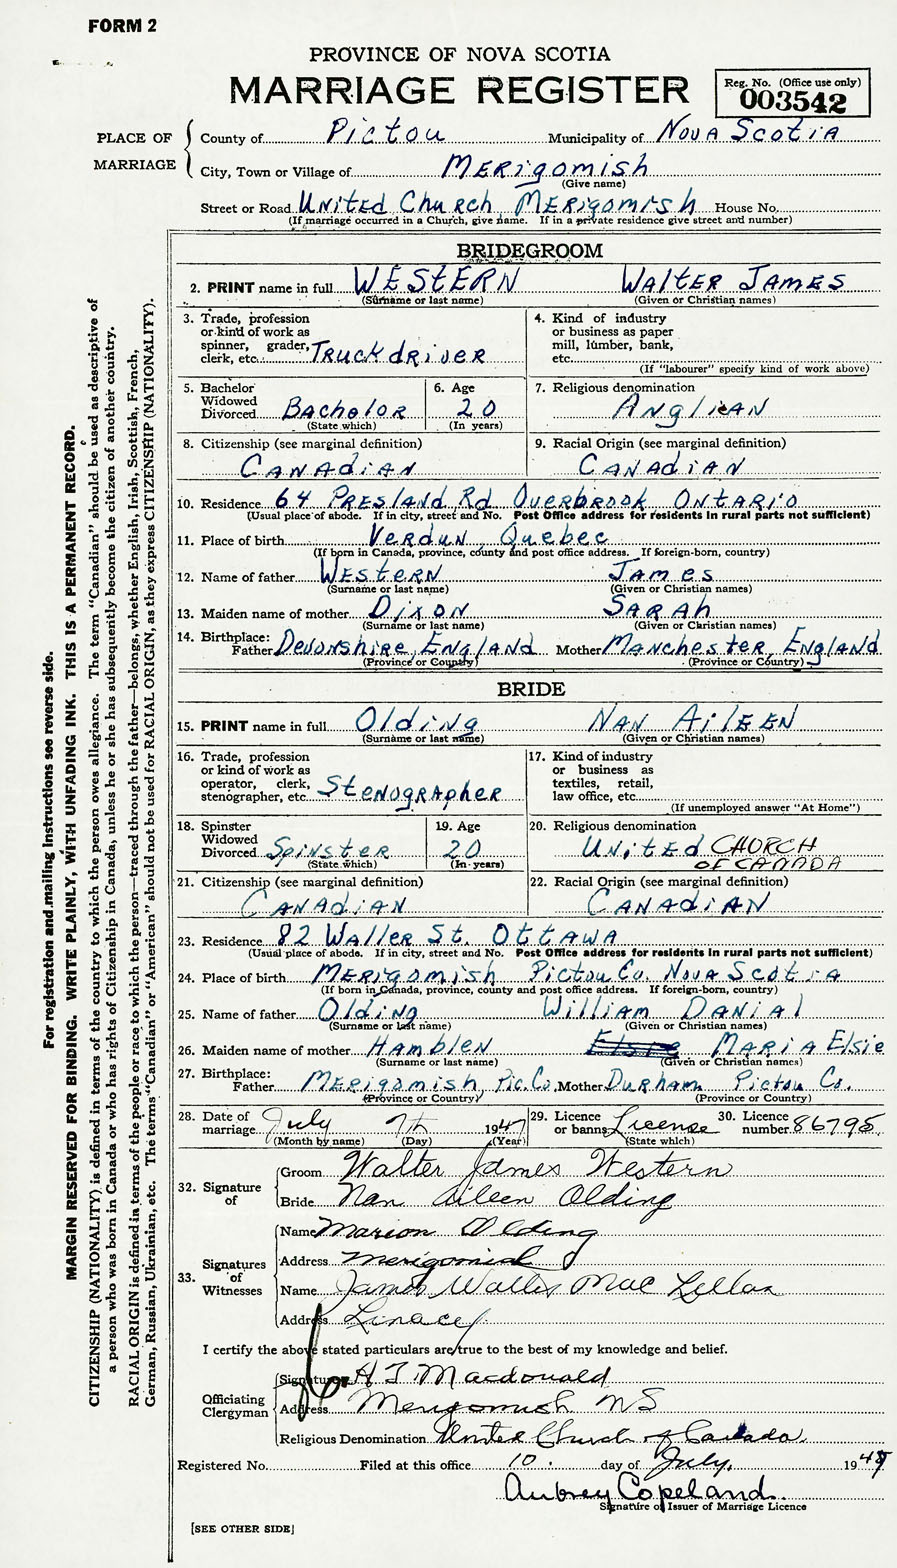 FORM 2
PROVINCE OF NOVA SCOTIA
MARRIAGE REGISTER
Reg. No. (Office use only)
003542
PLACE OF MARRIAGE
County of Pictou Municipality of Nova Scotia
City, Town or Village of Merigomish
(Give name)
Street or Road United Church Merigomish House No.
(If marriage occurred in a Church, give name. If in a private residence give street and number)
BRIDEGROOM
2. PRINT name in full WESTERN Walter James
(Surname or last name) (Given or Christian names)
3. Trade, profession or kind of work as spinner, grader, clerk, etc. Truckdriver
4. Kind of industry or business as paper mill, lumber, bank, etc.
(If "labourer" specify kind of work above)
5. Bachelor Widowed Divorced Bachelor
(State which)
6. Age 20
(In years)
7. Religious denomination Anglican
8. Citizenship (see marginal definition) Canadian
9. Racial Origin (see marginal definition) Canadian
10. Residence 64 Presland Rd Overbrook Ontario
(Usual place of abode. If in city, street and No. Post Office address for residents in rural parts not sufficient)
11. Place of birth Verdun, Quebec
(If born in Canada, province, county and post office address. If foreign-born, country)
12. Name of father Western James
(Surname or last name) (Given or Christian names)
13. Maiden name of mother Dixon Sarah
(Surname or last name) (Given or Christian names)
14. Birthplace: Father Devonshire, England Mother Manchester, England
(Province or Country) (Province or Country)
BRIDE
15. PRINT name in full Olding Nan Aileen
(Surname or last name) (Given or Christian names)
16. Trade, profession or kind of work as operator, clerk, stenographer, etc. Stenographer
17. Kind of industry or business as textiles, retail, law office, etc.
(If unemployed answer "At Home")
18. Spinster Widowed Divorced Spinster
(State which)
19. Age 20
(In years)
20. Religious denomination United CHURCH OF CANADA
21. Citizenship (see marginal definition) Canadian
22. Racial Origin (see marginal definition) Canadian
23. Residence 82 Waller St. Ottawa
(Usual place of abode. If in city, street and No. Post Office address for residents in rural parts not sufficient)
24. Place of birth Merigomish Pictou Co. Nova Scotia
(If born in Canada, province, county and post office address. If foreign-born, country)
25. Name of father Olding William Danial
(Surname or last name) (Given or Christian names)
26. Maiden name of mother Hamblen Maria Elsie
(Surname or last name) (Given or Christian names)
27. Birthplace: Father Merigomish Pic. Co. Mother Durham Pictou Co.
(Province or Country) (Province or Country)
28. Date of marriage July 7th 1947
(Month by name) (Day) (Year)
29. Licence or banns License
(State which)
30. Licence number 86795
32. Signature of
Groom Walter James Western
Bride Nan Aileen Olding
33. Signatures of Witnesses
Name Marion Olding
Address Merigomish
Name James Wallis Mac Lellan
Address
I certify the above stated particulars are true to the best of my knowledge and belief.
Officiating Clergyman
Signature Macdonald
Address Merigomish NS
Religious Denomination United Church of Canada
Registered No. Filed at this office 10. day of July, 1947
Aubrey Copeland.
Signature of Issuer of Marriage Licence
[SEE OTHER SIDE]
For registration and mailing instructions see reverse side.
MARGIN RESERVED FOR BINDING. WRITE PLAINLY, WITH UNFADING INK. THIS IS A PERMANENT RECORD.
CITIZENSHIP (NATIONALITY) is defined in terms of the country to which the person owes allegiance. The term "Canadian" should be used as descriptive of
a person who was born in Canada or who has rights of Citizenship in Canada, unless he or she has subsequently become the citizen of another country.
RACIAL ORIGIN is defined in terms of the people or race to which the person—traced through the father—belongs, whether English, Irish, Scottish, French,
German, Russian, Ukrainian, etc. The terms "Canadian" or "American" should not be used for RACIAL ORIGIN, as they express CITIZENSHIP (NATIONALITY).